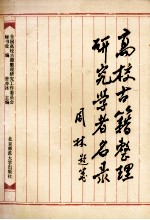 高校古籍整理
研究学者名录
周林题签
全国高校古籍整理研究工作委员会
北京师范大学出版社